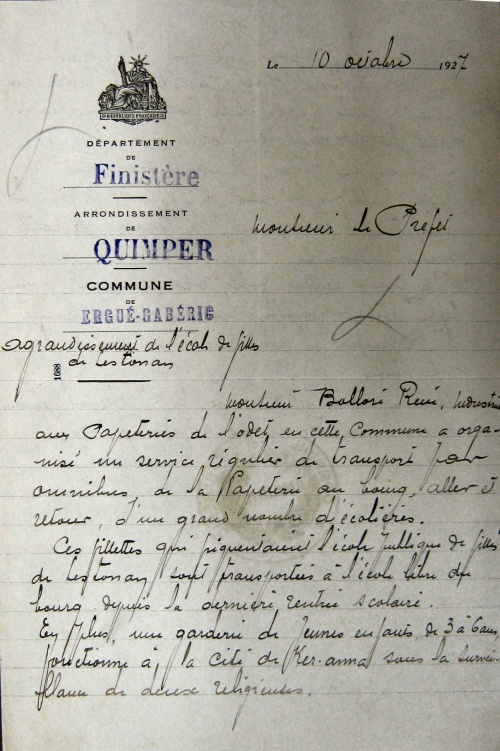 Le 10 octobre 1927
RÉPUBLIQUE FRANÇAISE
DÉPARTEMENT
DE
Finistère
ARRONDISSEMENT
DE
QUIMPER
COMMUNE
DE
ERGUÉ-GABÉRIC
Monsieur le Préfet
agrandissement de l'école de filles
de Lestonan
1688
Monsieur Bolloré René, industriel
aux Papeteries de l'odet, en cette Commune a orga-
nisé un service régulier de transport par
omnibus, de la Papeterie au bourg, aller et
retour, d'un grand nombre d'écolières.
Ces fillettes qui fréquentaient l'école publique de filles
de Lestonan sont transportées à l'école libre du
bourg depuis la dernière rentrée scolaire.
En plus, une garderie de jeunes enfants de 3 à 6 ans,
fonctionne à la cité de Ker-anna sous la surveil-
lance de deux religieuses.